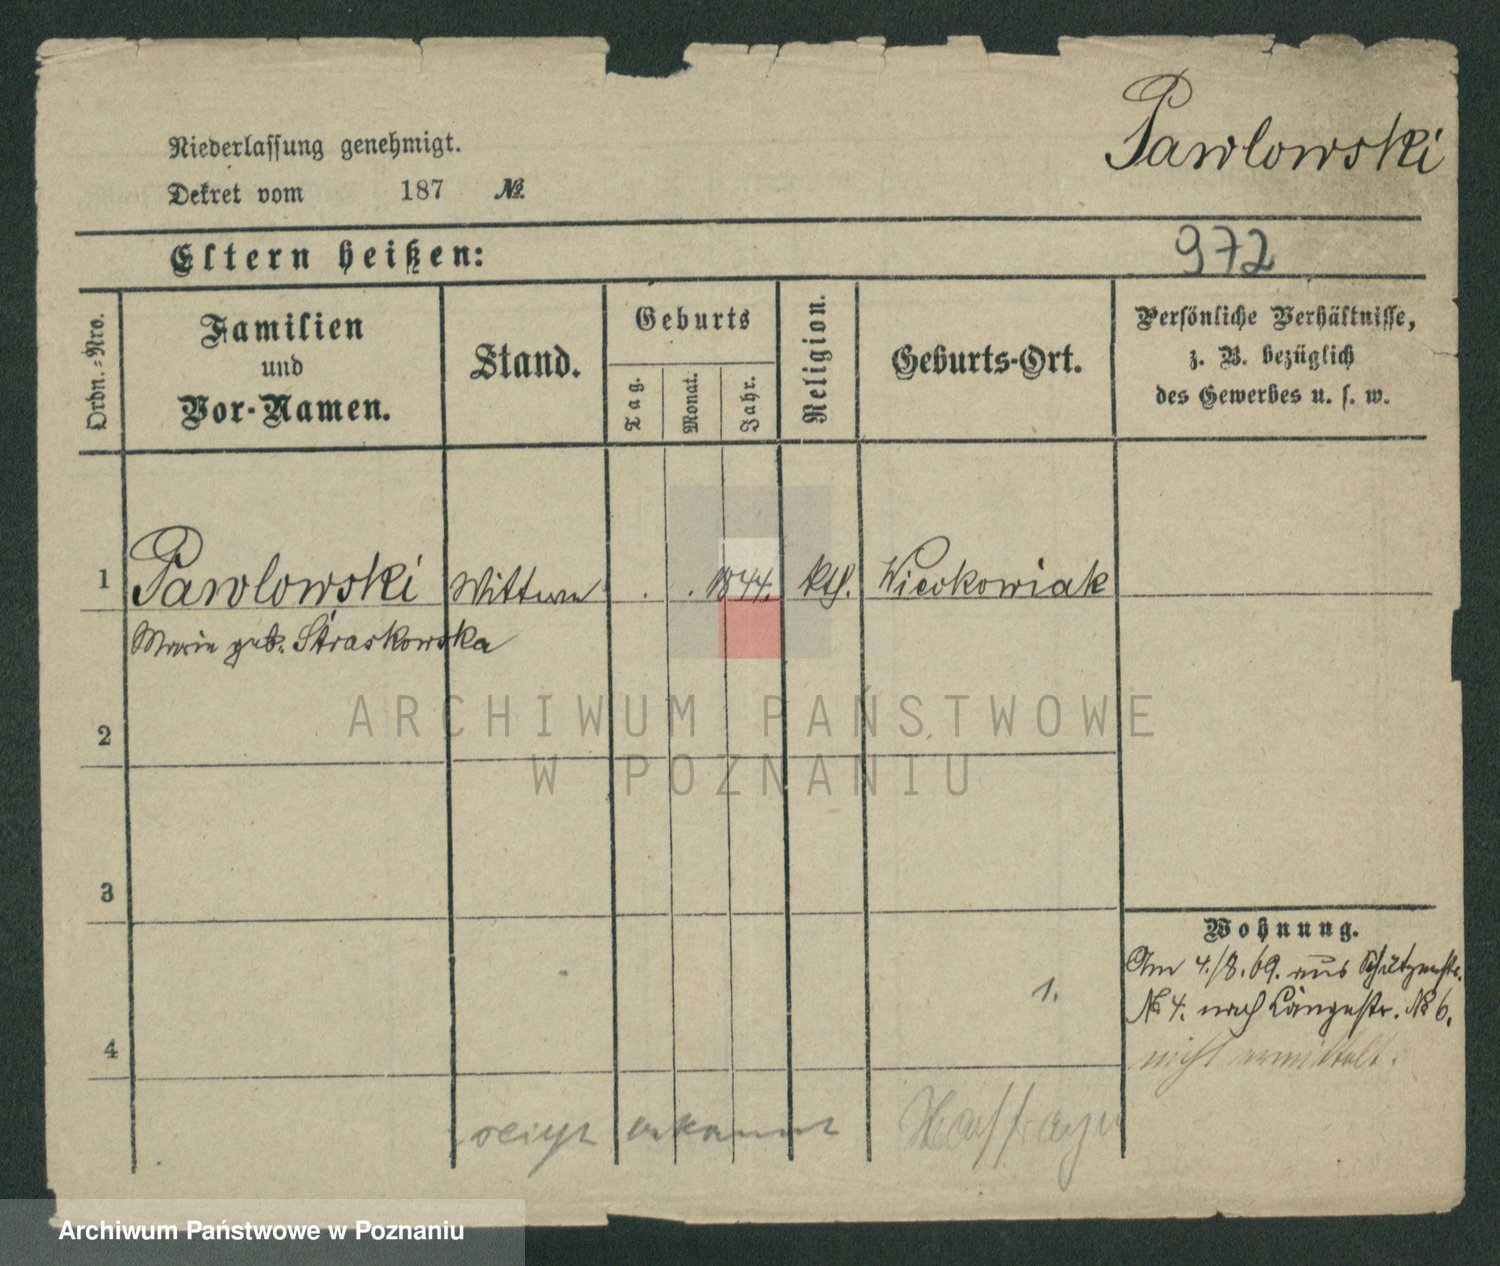 Pawlowski
Niederlassung genehmigt.
Dekret vom 187 №.
Eltern heißen:
972
Ordn.-Nro.
Familien
und
Vor-Namen.
Stand.
Geburts
Tag.
Monat.
Jahr.
Religion.
Geburts-Ort.
Persönliche Verhältnisse,
z. B. bezüglich
des Gewerbes u. s. w.
1 Pawlowski Wittwe . . 1844. kth. Wieckowiak
Marie geb. Straskowska
ARCHIWUM PAŃSTWOWE
W POZNANIU
2
3
Wohnung.
Am 4./8.69. aus Schützenstr.
№ 4. nach Langestr. № 6.
1.
nicht ermittelt.
4
nicht bekannt
Archiwum Państwowe w Poznaniu